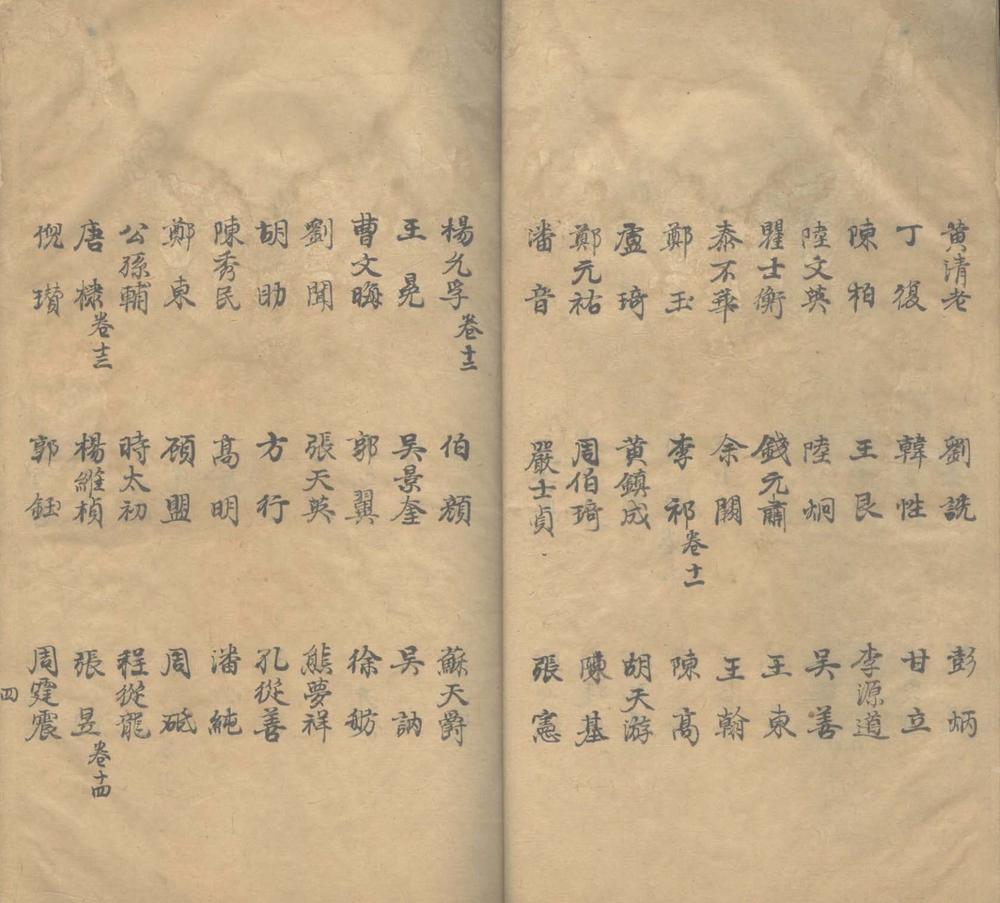 黄清老 劉詵 彭炳
丁復 韓性 甘立
陳柏 王艮 李源道
陸文英 陸炯 吳善
瞿士衡 錢元肅 王東
泰不華 余闕 王翰
鄭玉 李祁卷十一 陳高
盧琦 黄鎮成 胡天游
鄭元祐 周伯琦 陳基
潘音 嚴士貞 張憲
楊允孚卷十二 伯顏 蘇天爵
王冕 吳景奎 吳訥
曹文晦 郭翼 徐舫
劉聞 張天英 熊夢祥
胡助 方行 孔從善
陳秀民 髙明 潘純
鄭東 碩盟 周砥
公孫輔 時太初 程從龍
唐棣卷十三 楊維楨 張昱卷十四
倪瓚 郭鈺 周霆震
四